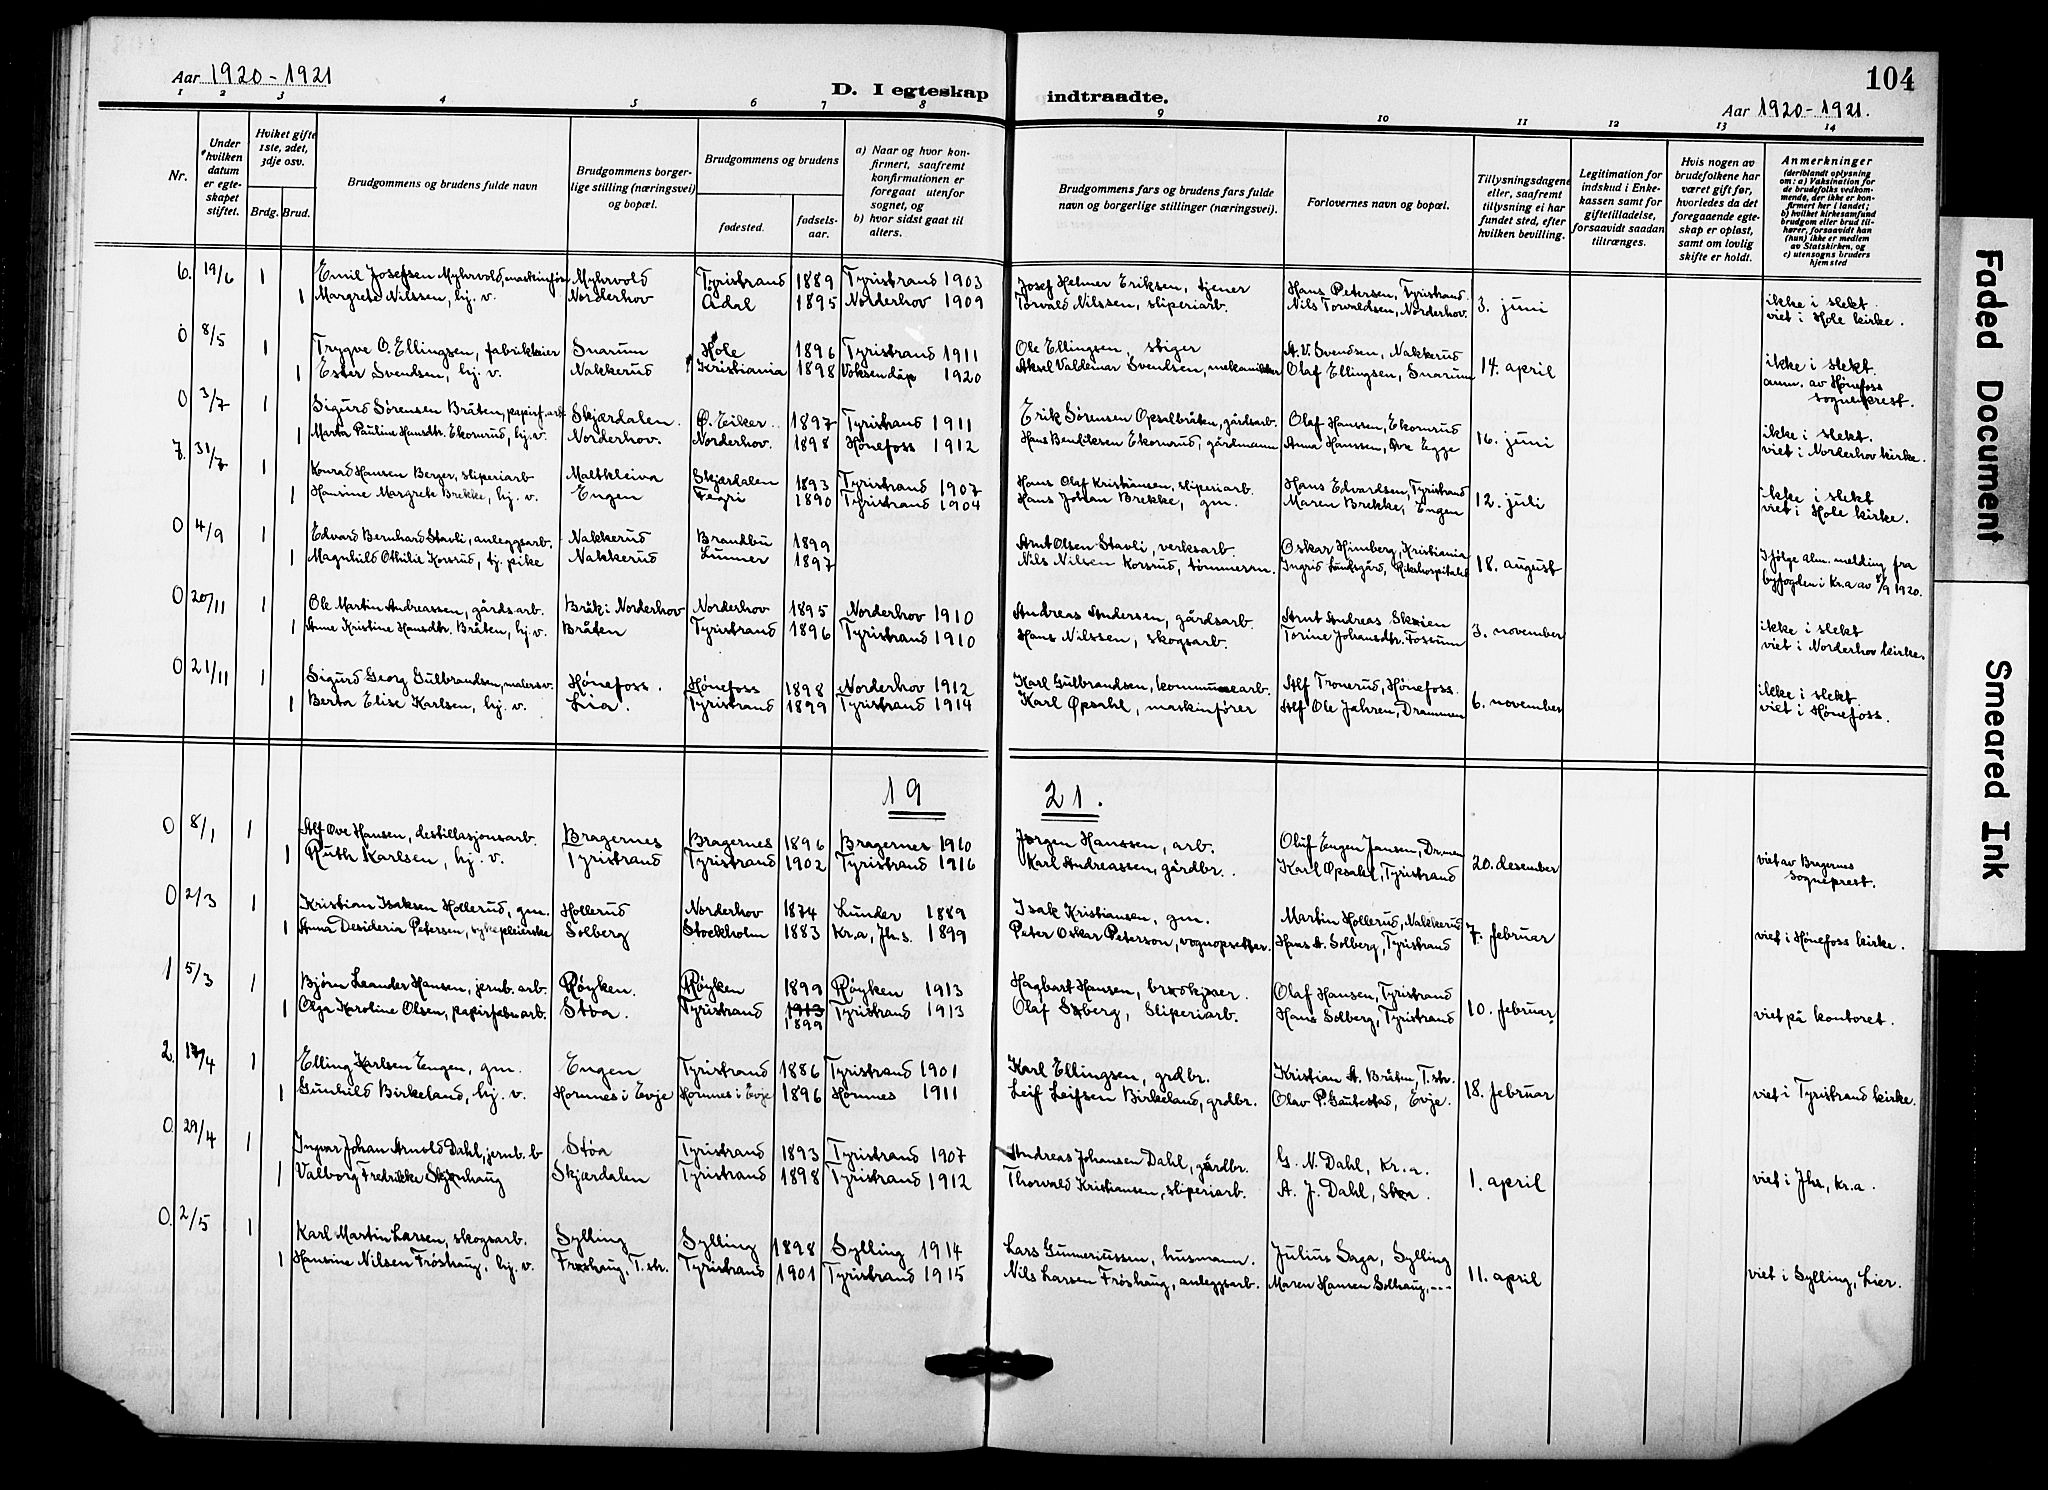 Aar 1920-1921
D. I egteskap indtraadte.
104
Aar 1920-1921.
1 2 3 4 5 6 7 8 9 10 11 12 13 14
Nr.
Under hvilken datum er egteskapet stiftet.
Hvilket gifte 1ste, 2det, 3dje osv.
Brdg. Brud.
Brudgommens og brudens fulde navn
Brudgommens borgerlige stilling (næringsvei) og bopæl.
Brudgommens og brudens
fødested.
fødselsaar.
a) Naar og hvor konfirmert, saafremt konfirmationen er foregaat utenfor sognet, og
b) hvor sidst gaat til alters.
Brudgommens fars og brudens fars fulde navn og borgerlige stillinger (næringsvei).
Forlovernes navn og bopæl.
Tillysningsdagene eller, saafremt tillysning ei har fundet sted, efter hvilken bevilling.
Legitimation for indskud i Enkekassen samt for giftetilladelse, forsaavidt saadan tiltrænges.
Hvis nogen av brudefolkene har været gift før, hvorledes da det foregaaende egteskap er opløst, samt om lovlig skifte er holdt.
Anmerkninger (deriblandt oplysning om: a) Vaksination for de brudefolks vedkommende, der ikke er konfirmert her i landet; b) hvilket kirkesamfund brudgom eller brud tilhører, forsaavidt han (hun) ikke er medlem av Statskirken, og c) utensogns bruders hjemsted
6. 19/6 1 Emil Josefsen Myhrvold, maskinfør. Myhrvold Tyristrand 1889 Tyristrand 1903 Josef Helmer Eriksen, tjener Hans Petersen, Tyristrand. 3. juni ikke i slekt.
1 Margrete Nilssen, hj. v. Norderhov Ådal 1895 Norderhov 1909 Torvald Nilssen, sliperiarb. Nils Torvaldsen, Norderhov. viet i Hole kirke.
0 8/5 1 Trygve O. Ellingsen, fabrikkeier Snarum Hole 1896 Tyristrand 1911 Ole Ellingsen, stiger A. V. Svendsen, Nakkerud 14. april ikke i slekt.
1 Ester Svendsen, hj. v. Nakkerud Kristiania 1898 Voksendåp 1920 Aksel Valdemar Svendsen, mekaniker Olaf Ellingsen, Snarum anm. av Hønefoss sogneprest.
0 3/7 1 Sigurd Sørensen Bråten, papirf. arb. Skjærdalen. Ø. Eiker. 1897 Tyristrand 1911 Erik Sørensen Opsalbråten, gårdsarb. Olaf Hanssen, Ekornrud 16. juni ikke i slekt.
1 Marta Pauline Hansdtr. Ekornrud, hj. v. Norderhov. Norderhov. 1898 Hønefoss 1912 Hans Bendiksen Ekornrud, gårdmann Anna Hanssen, Øve Egge viet i Norderhov kirke.
7. 31/7 1 Konrad Hansen Berger, sliperiarb Maltkleiva Skjærdalen 1893 Tyristrand 1907 Hans Olaf Kristiansen, sliperiarb. Hans Edvardsen, Tyristrand 12. juli ikke i slekt
1 Hansine Margrete Brekke, hj. v. Engen Fegri 1890 Tyristrand 1904 Hans Johan Brekke, gm. Maren Brekke, Engen viet i Hole kirke.
0 4/9 1 Edvard Bernhard Stavli, anleggsarb. Nakkerud Brandbu 1899 Arnt Olsen Stavli, verksarb. Oskar Himberg, Kristiania 18. august Ifølge alm. melding fra
1 Magnhild Othilie Korsrud, tj. pike Nakkerud Lunner 1897 Nils Nilsen Korsrud, tømmerm. Ingrid Lundsgård, Rikshospitalet byfogden i Kr.a av 8/9 1920.
0 20/11 1 Ole Martin Andreassen, gårdsarb. Bråk i Norderhov Norderhov 1895 Norderhov 1910 Andreas Andersen, gårdsarb. Arnt Andreas Skøien 3. november ikke i slekt
1 Anne Kristine Hansdtr. Bråten, hj. v. Bråten Tyristrand 1896 Tyristrand 1910 Hans Nilssen, skogsarb. Torine Johansdtr. Fossum viet i Norderhov kirke.
0 21/11 1 Sigurd Georg Gulbrandsen, malersv. Hønefoss. Hønefoss 1898 Norderhov 1912 Karl Gulbrandsen, kommunearb. Alf Tronerud, Hønefoss. 6. november ikke i slekt.
1 Berta Elise Karlsen, hj. v. Lia. Tyristrand 1899 Tyristrand 1914 Karl Opsahl, maskinfører Alf Ole Jahren, Drammen viet i Hønefoss.
19 21.
0 8/1 1 Alf Ove Hansen, destillasjonsarb. Bragernes Bragernes 1896 Bragernes 1910 Jørgen Hanssen, arb. Oluf Engen Jansen, Dr.men 20. desember viet av Bragernes sogneprest.
1 Ruth Karlsen, hj. v. Tyristrand Tyristrand 1902 Tyristrand 1916 Karl Andreassen, gårdbr. Karl Opsahl, Tyristrand
0 2/3 1 Kristian Isaksen Hollerud, gm. Hollerud Norderhov 1874 Lunder 1889 Isak Kristiansen, gm. Martin Hollerud, Nakkerud 7. februar viet i Hønefoss kirke.
1 Anna Desideria Petersen, sykepleierske Solberg Stockholm 1883 Kr.a, Jhs. 1899 Peter Oskar Peterson, vognopsetter. Hans A. Solberg, Tyristrand
1 5/3 1 Bjørn Leander Hansen, jernb. arb. Røyken. Røyken 1899 Røyken 1913 Hagbart Hansen, brødkjører. Olaf Hansen, Tyristrand 10. februar viet på kontoret.
1 Olga Karoline Olsen, papirfabr. arb. Støa. Tyristrand 1913 1899 Tyristrand 1913 Olaf Søberg, Sliperiarb. Hans Solberg, Tyristrand
2. 17/4 1 Elling Karlsen Engen, gm. Engen Tyristrand 1886 Tyristrand 1901 Karl Ellingsen, grdbr. Kristian A. Bråten, T. str. 18. februar viet i Tyristrand kirke.
1 Gunhild Birkeland, hj. v. Hornnes i Evje Hornnes i Evje 1896 Hornnes 1911 Leif Leifsen Birkeland, grdbr. Olav P. Gautestad, Evje.
0. 29/4 1 Ingvar Johan Arnold Dahl, jernb. b Støa Tyristrand 1893 Tyristrand 1907 Andreas Johansen Dahl, gårdbr. G. N. Dahl, Kr.a. 1. april viet i Jhs, Kr.a.
1 Valborg Fredrikke Skjønhaug Skjærdalen Tyristrand 1898 Tyristrand 1912 Thorvald Kristiansen, sliperiarb. A. J. Dahl, Støa.
0. 2/5 1 Karl Martin Larsen, skogsarb. Sylling Sylling 1898 Sylling 1914 Lars Gunneriussen, husmann. Julius Saga, Sylling 11. april viet i Sylling, Lier.
1 Hansine Nilsen Frøshaug, hj. v. Frøshaug, T. str. Tyristrand 1901 Tyristrand 1915 Nils Larsen Frøshaug, anleggsarb. Maren Hansen Solhaug, ---
Faded Document
Smeared Ink